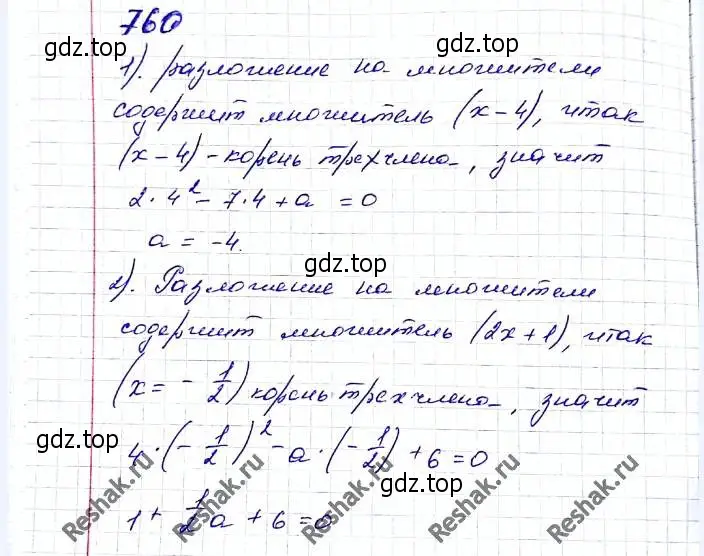 760
gdz.top
1). разложение на множители
gdz.top
содержит множитель (x-4), итак
(x-4) - корень трехчлена, значит
gdz.top
2·4² - 7·4 + a = 0
a = -4.
gdz.top
2). Разложение на множители
содержит множитель (2x+1), итак
gdz.top
(x = - 1/2) корень трехчлена, значит
gdz.top
4·(- 1/2)² - a·(- 1/2) + 6 = 0
gdz.top
1 + 1/2 a + 6 = 0
Reshak.ru
Reshak.ru
Reshak.ru
Reshak.ru